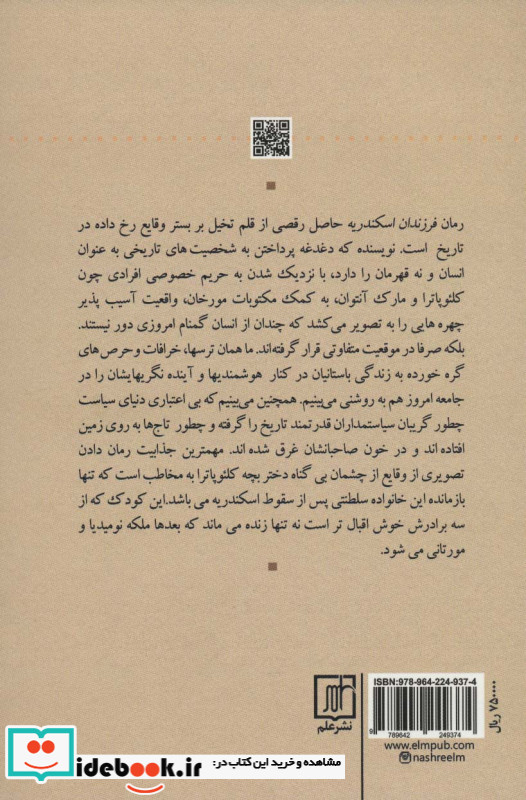 رمان فرزندان اسکندریه حاصل رقصی از قلم تخیل بر بستر وقایع رخ داده در
تاریخ است. نویسنده که دغدغه پرداختن به شخصیت های تاریخی به عنوان
انسان و نه قهرمان را دارد، با نزدیک شدن به حریم خصوصی افرادی چون
کلئوپاترا و مارک آنتوان، به کمک مکتوبات مورخان، واقعیت آسیب پذیر
چهره هایی را به تصویر می‌کشد که چندان از انسان گمنام امروزی دور نیستند.
بلکه صرفا در موقعیت متفاوتی قرار گرفته‌اند. ما همان ترسها، خرافات و حرص های
گره خورده به زندگی باستانیان در کنار هوشمندیها و آینده نگریهایشان را در
جامعه امروز هم به روشنی می‌بینیم. همچنین می‌بینیم که بی اعتباری دنیای سیاست
چطور گریبان سیاستمداران قدرتمند تاریخ را گرفته و چطور تاج‌ها به روی زمین
افتاده اند و در خون صاحبانشان غرق شده اند. مهمترین جذابیت رمان دادن
تصویری از وقایع از چشمان بی گناه دختر بچه کلئوپاترا به مخاطب است که تنها
بازمانده این خانواده سلطنتی پس از سقوط اسکندریه می باشد.این کودک که از
سه برادرش خوش اقبال تر است نه تنها زنده می ماند که بعدها ملکه نومیدیا و
مورتانی می شود.
ISBN: 978-964-224-937-4
9 789642 249374
۷۵۰۰۰۰ ریال
www.elmpub.com
nashreelm
نشر علم
مشاهده و خرید این کتاب در:
idebook.ir